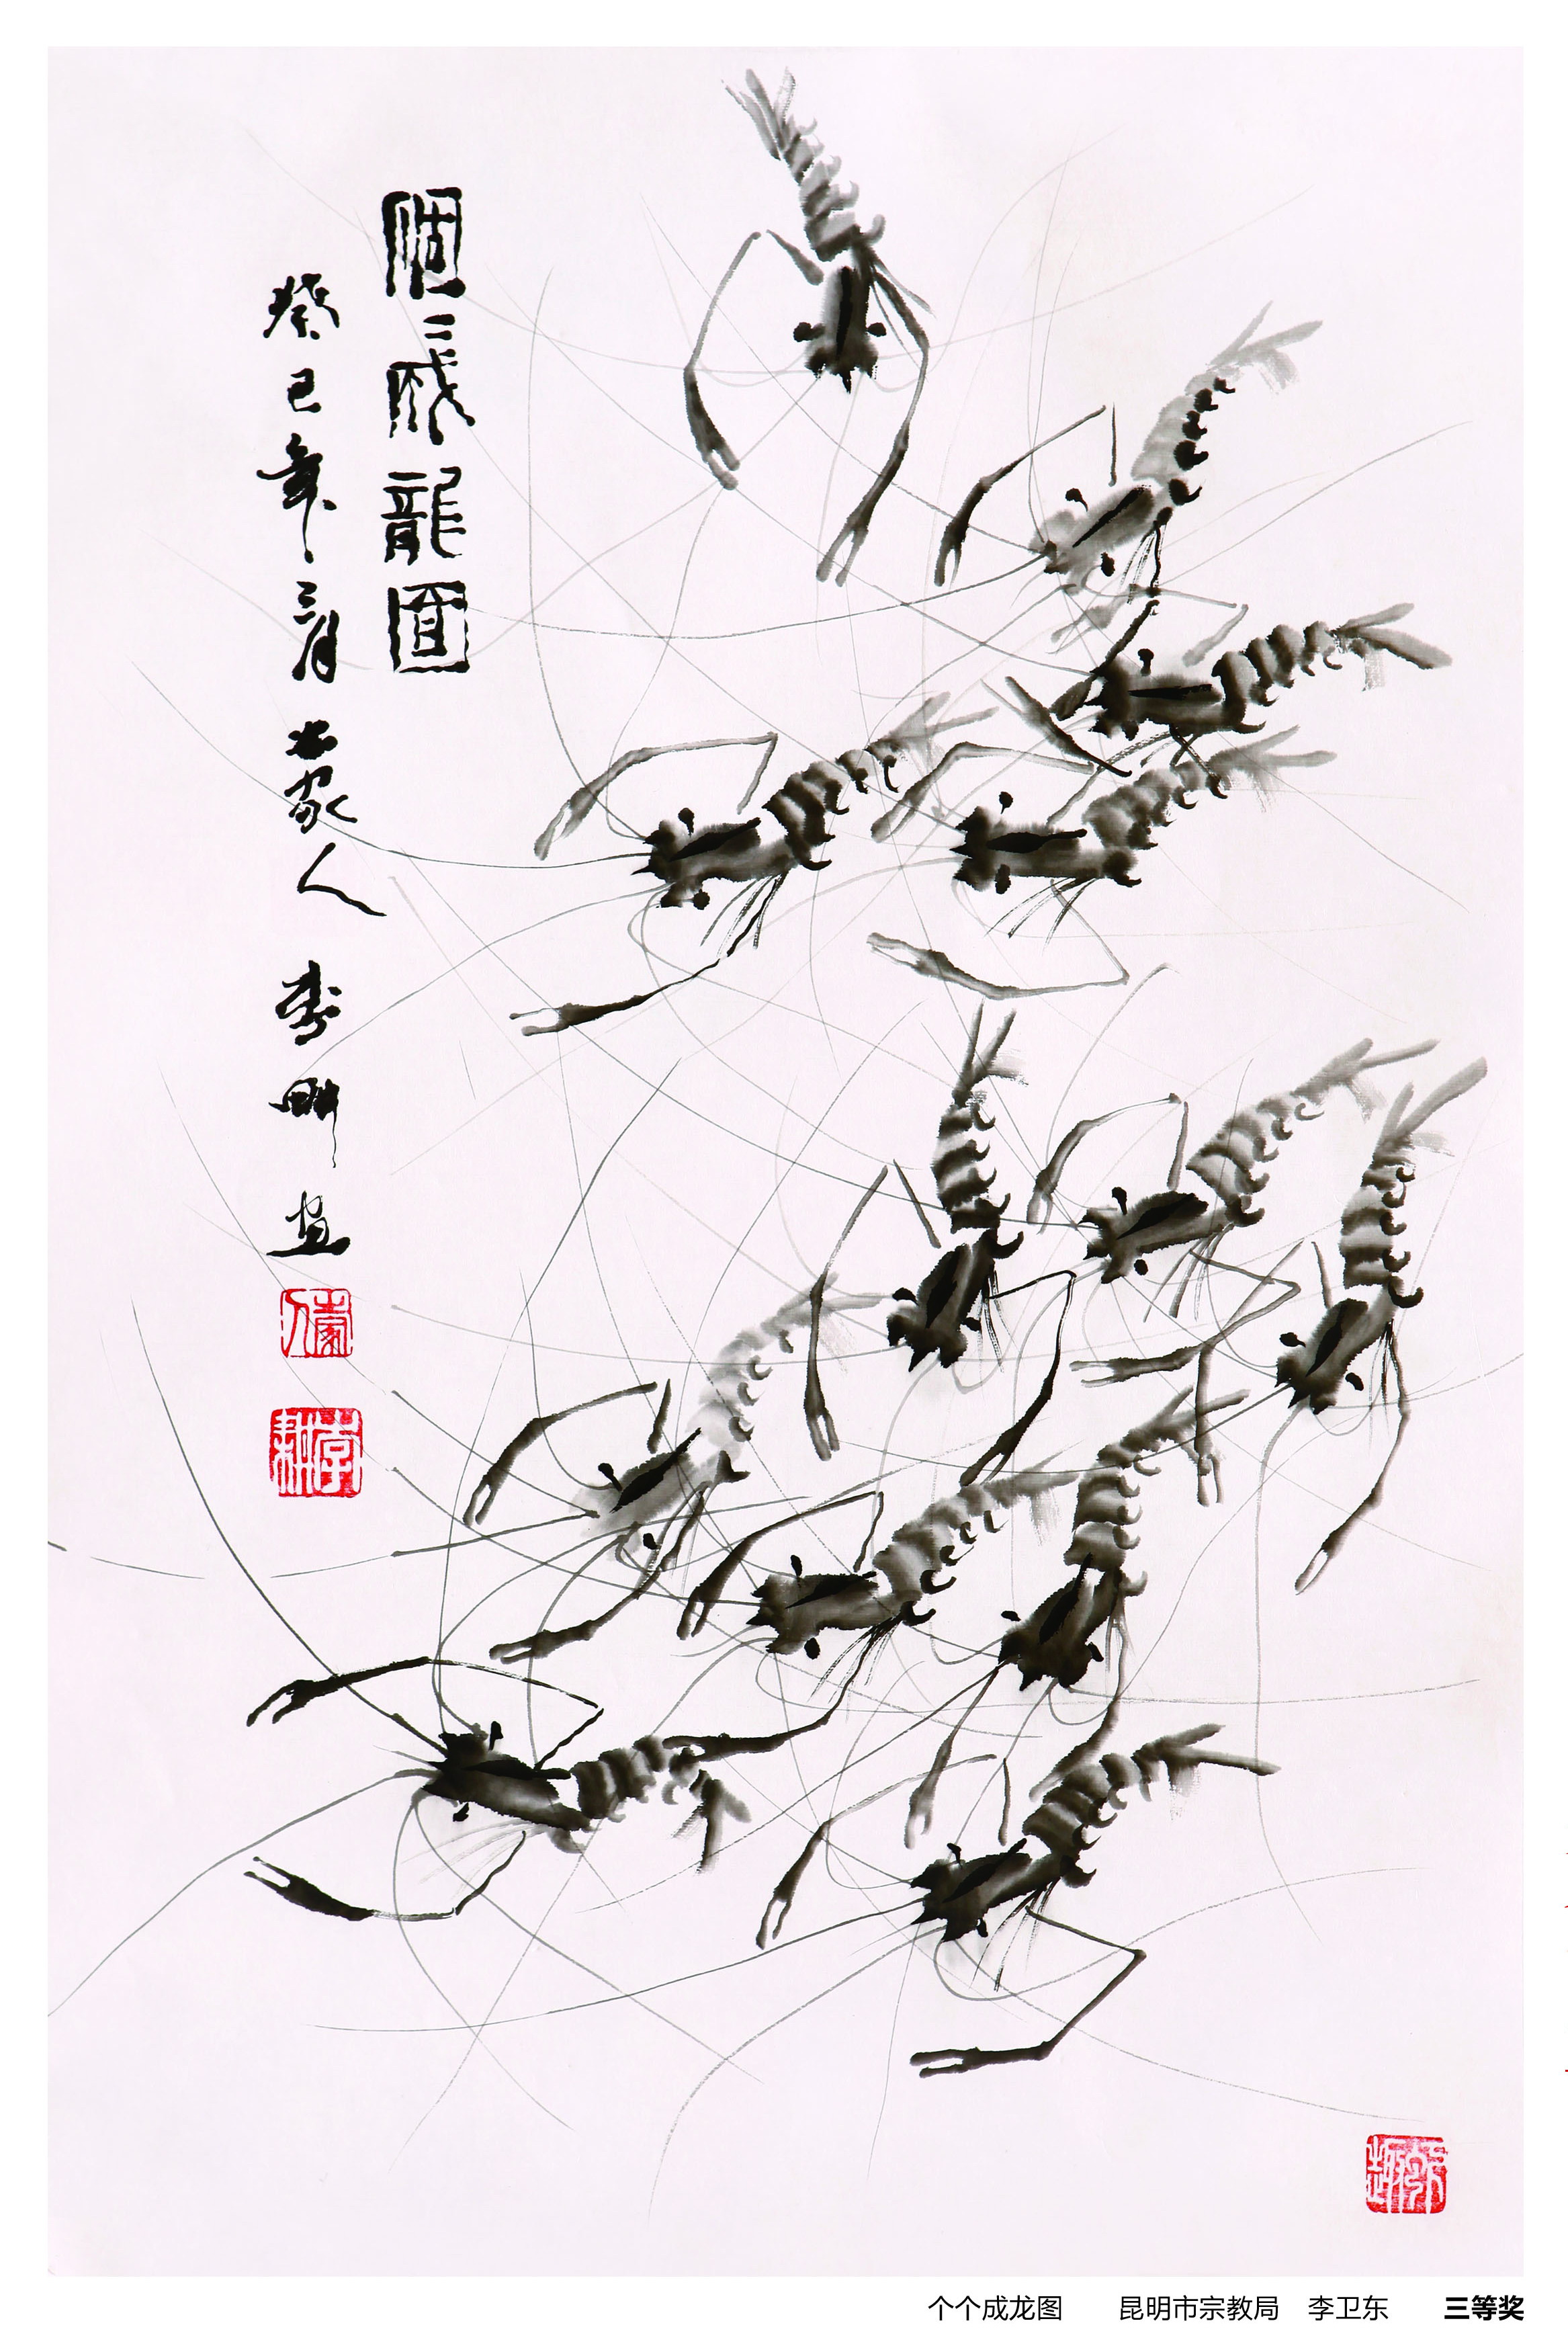 個〻成龍圖
癸巳年三月 蒙人 李畊 畫
蒙人
李耕
个个成龙图 昆明市宗教局 李卫东 三等奖